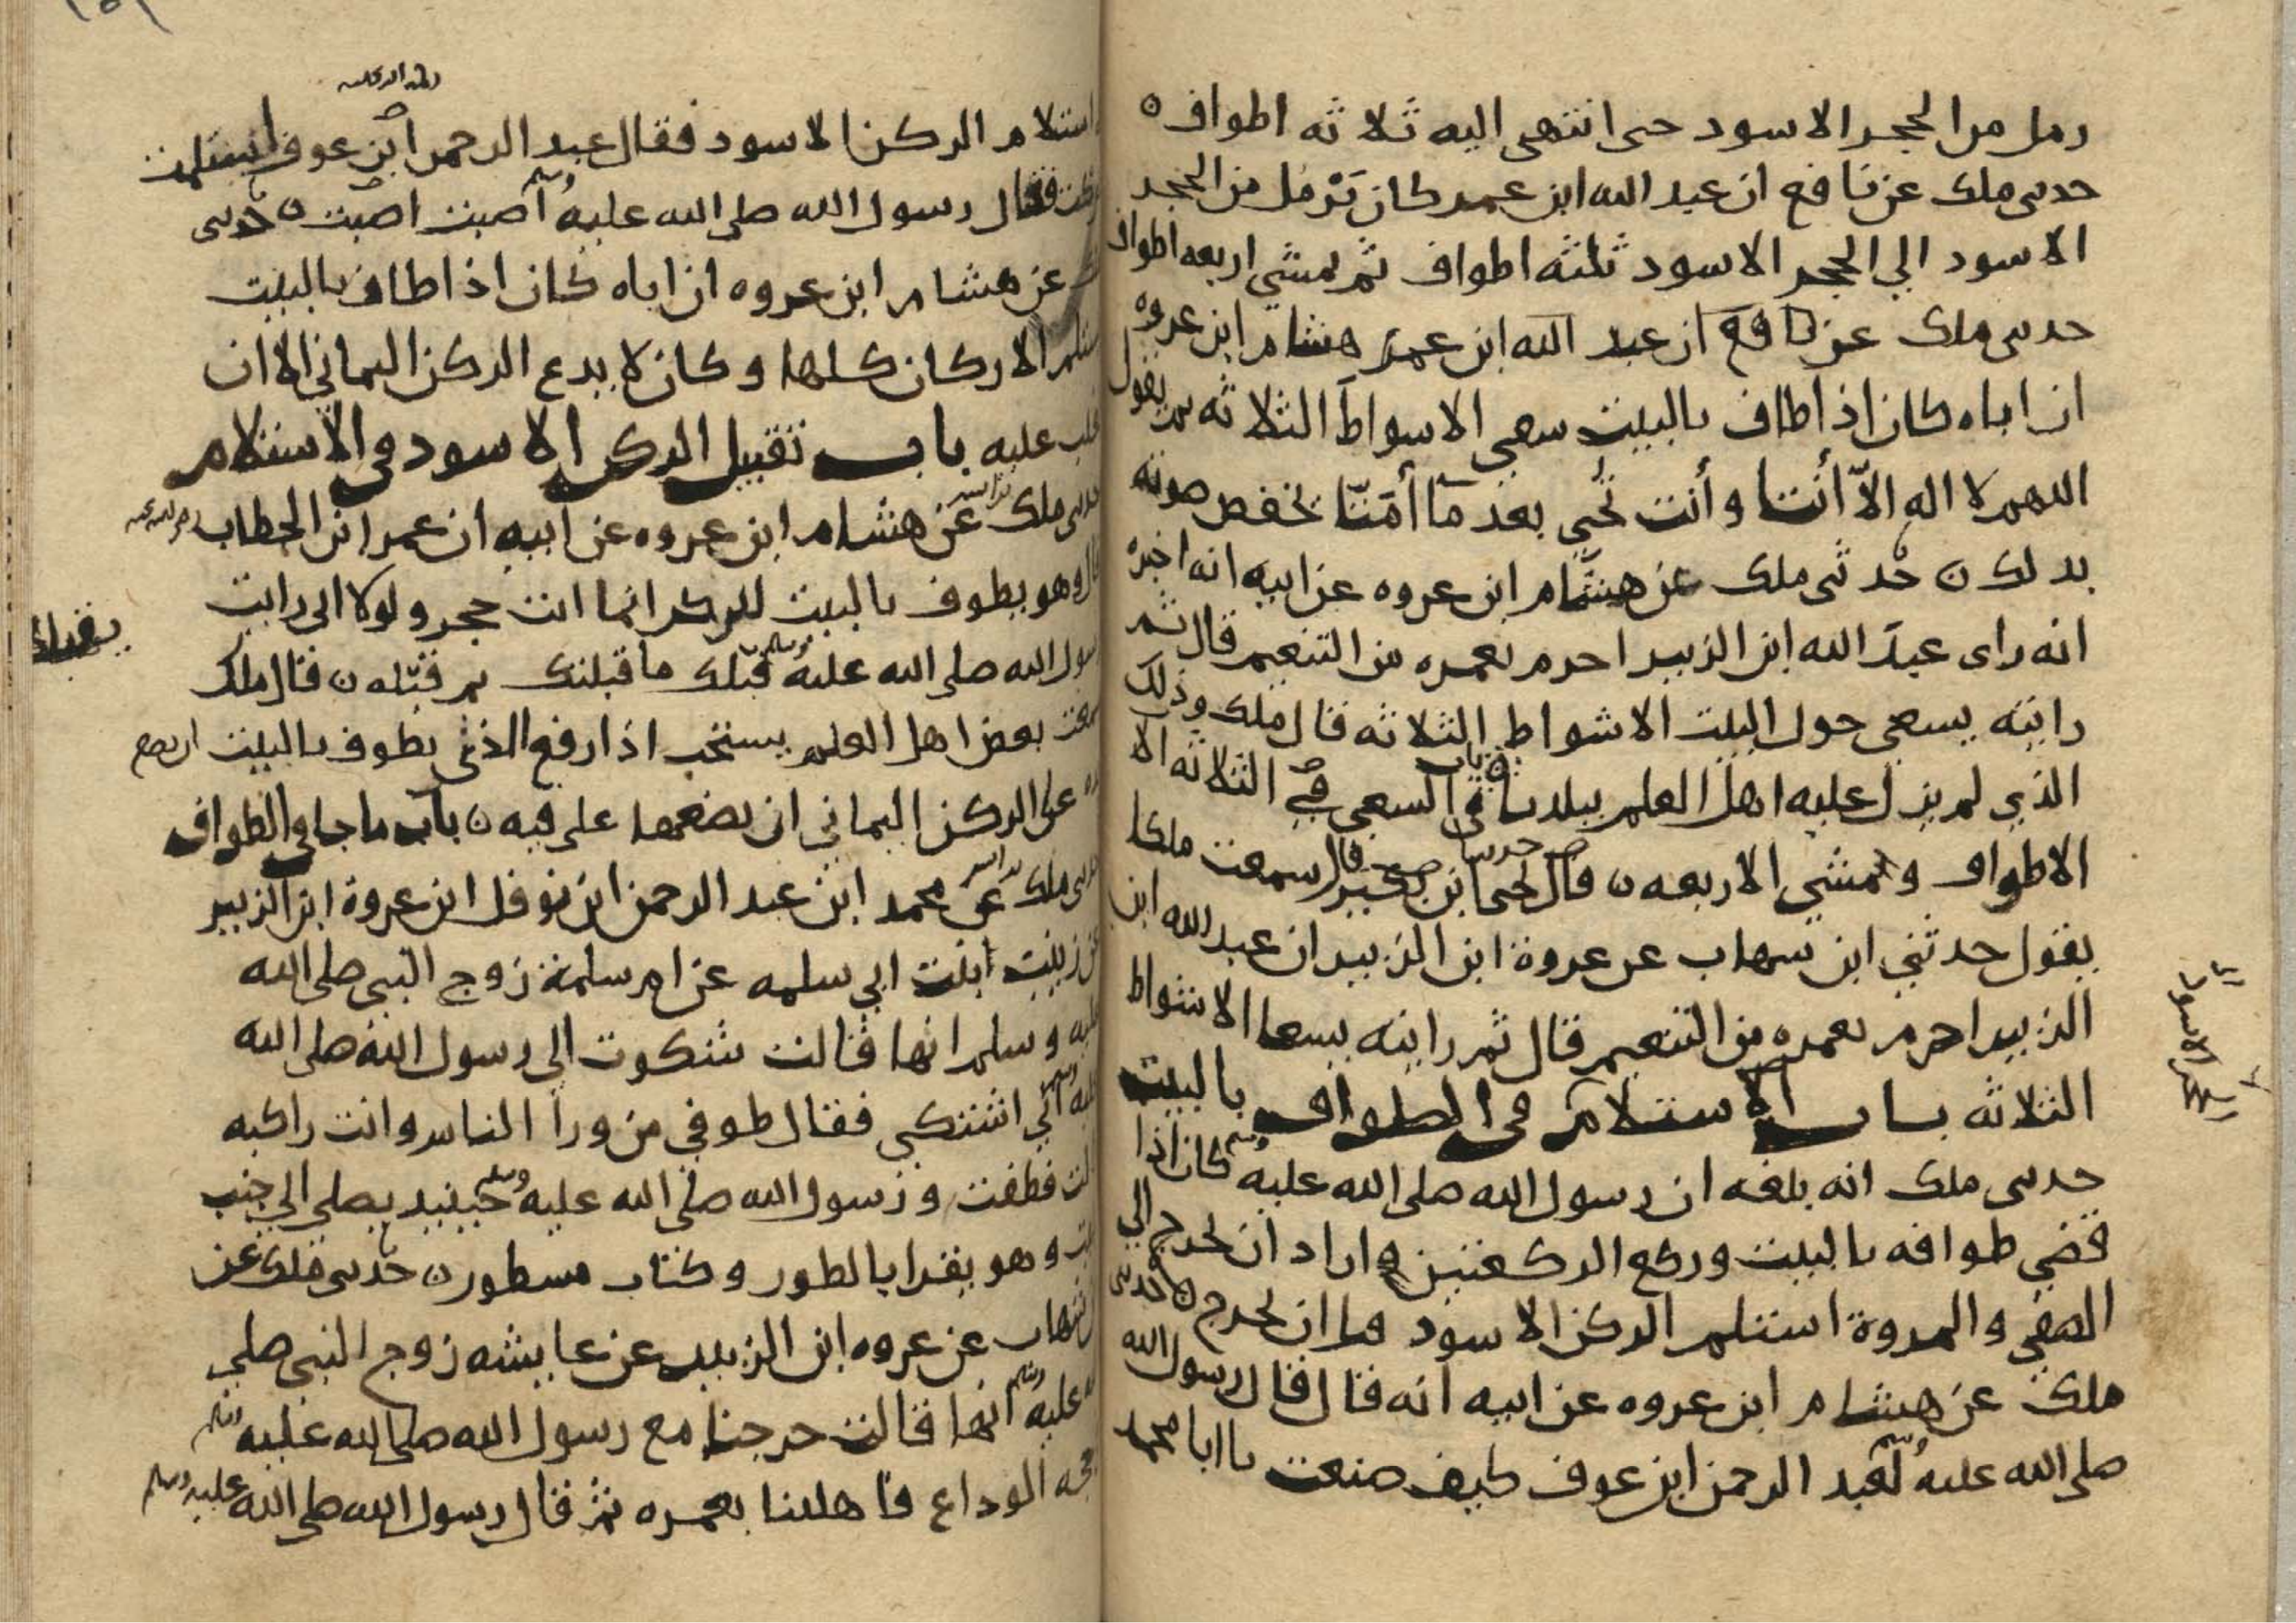 رمل من الحجر الاسود حتى انتهى اليه ثلاثه اطواف ه
حدثنى ملك عن نافع ان عبد الله ابن عمر كان يَرْمُل من الحجر
الاسود الي الحجر الاسود ثلثه اطواف ثم يمشي اربعه اطواف
حدثنى ملك عن نافع ان عبد الله ابن عمر هشام ابن عروه
ان اباه كان اذا طاف بالبيت سعي الاسواط الثلاثه ثم يقول
اللهم لا اله الاّ أنتا وأنت تُحيي بعد مَا أمَتّا يخفض صوته
بذلك ن حدثنى ملك عن هشام ابن عروه عن ابيه انه اخبره
انه راى عبدَ الله ابن الزبير احرم بعمره من التنعيم قال ثم
رايته يسعي حول البيت الاشواط الثلاثه قال ملك وذلك
الذي لم يزل عليه اهل العلم ببلدنا في السعي في الثلاثه الا
الاطواف ويمشي الاربعه ن قال يحيى ابن بكير قال سمعت ملكا
يقول حدثني ابن شهاب عن عروة ابن الزبير ان عبد الله ابن
الزبير احرم بعمره من التنعيم قال ثم رايته يسعا الاشواط
الثلاثه باب الاستلام في الطواف بالبيت
حدثنى ملك انه بلغه ان رسول الله صلى الله عليه وسلم كان اذا
قضي طوافه بالبيت وركع الركعتين واراد ان يخرج الي
الصفى والمروة استلم الركن الاسود قبل ان يخرج ن حدثنى
ملك عن هشام ابن عروه عن ابيه انه قال قال رسول الله
صلى الله عليه وسلم لعبد الرحمن ابن عوف كيف صنعت يا ابا محمد
الركن الاسود
استلام الركن الاسود فقال عبد الرحمن ابن عوف استلمت
وتركت فقال رسول الله صلى الله عليه وسلم اصبت اصبت ن حدثنى
ملك عن هشام ابن عروه ان اباه كان اذا طاف بالبيت
يستلم الاركان كلها وكان لا يدع الركن اليماني الا ان
يغلب عليه باب تقبيل الركن الاسود في الاستلام
حدثنى ملك عن هشام ابن عروه عن ابيه ان عمر ابن الخطاب رضى الله عنه
قال وهو يطوف بالبيت للركن انما انت حجر ولولا انى رايت
رسول الله صلى الله عليه وسلم قبلك ما قبلتك ثم قبّله ن قال ملك
سمعت بعض اهل العلم يستحب اذا رفع الذى يطوف بالبيت
يده عن الركن اليماني ان يضعها على فيه ن باب ما جا في الطواف
حدثنى ملك عن محمد ابن عبد الرحمن ابن نوفل ابن عروة ابن الزبير
عن زينب ابنت ابي سلمه عن ام سلمة زوج النبى صلى الله
عليه وسلم انها قالت شكوت الي رسول الله صلى الله
عليه وسلم اني اشتكي فقال طوفي من ورا الناس وانت راكبه
قالت فطفت ورسول الله صلى الله عليه وسلم حينيذ يصلي الي جنب
البيت وهو يقرا بالطور وكتاب مسطور ن حدثنى ملك عن
ابن شهاب عن عروه ابن الزبير عن عايشه زوج النبى صلي
الله عليه وسلم انها قالت خرجنا مع رسول الله صلى الله عليه وسلم
حجه الوداع فاهللنا بعمره ثم قال رسول الله صلى الله عليه وسلم